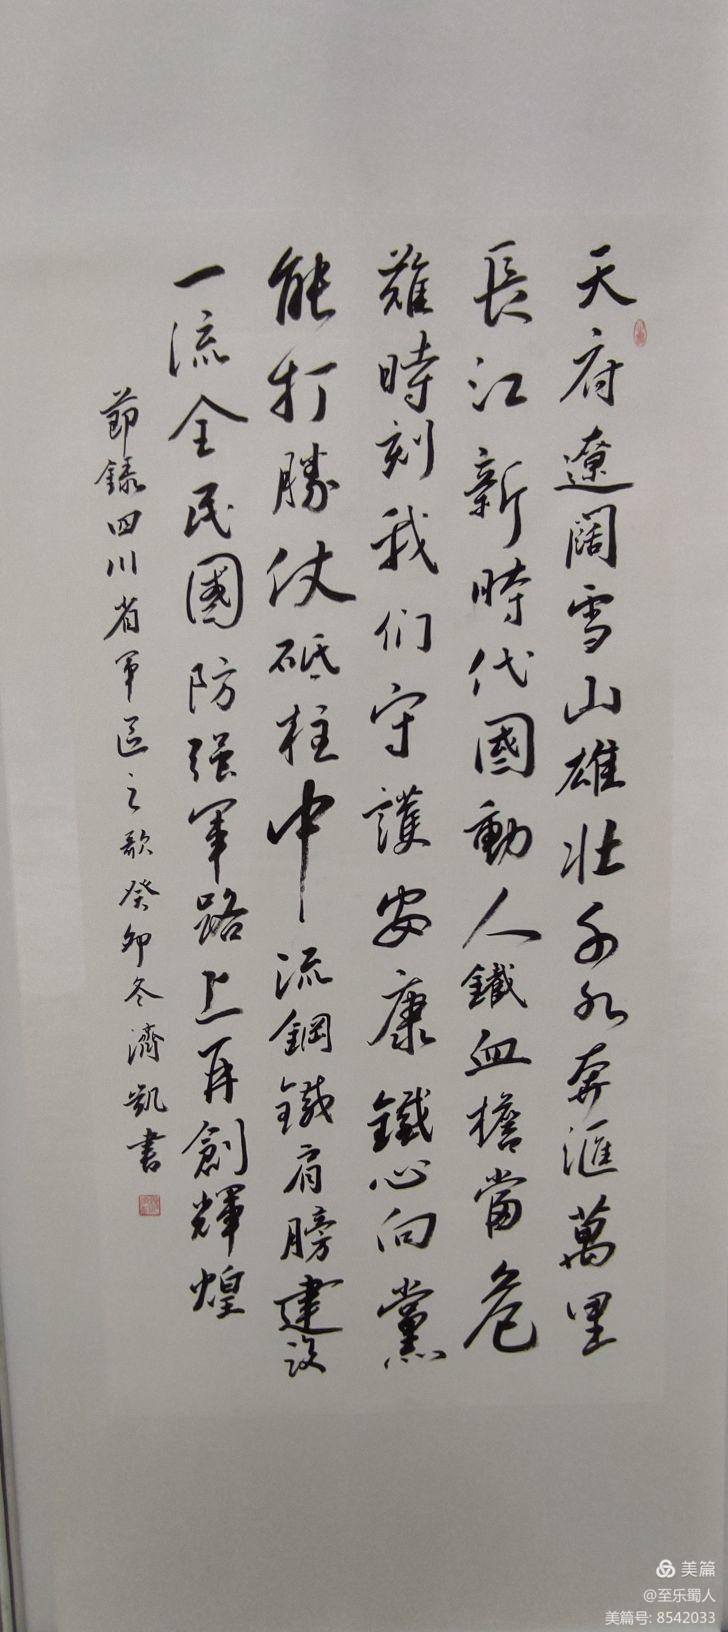 天府遼闊雪山雄壮千水奔滙萬里
長江新時代國動人鐵血擔當危
難時刻我们守護安康鐵心向黨
能打勝仗砥柱中流鋼鐵肩膀建设
一流全民國防强軍路上再創輝煌
節録四川省軍區之歌癸卯冬濟凱書
美篇
@至乐蜀人
美篇号: 8542033